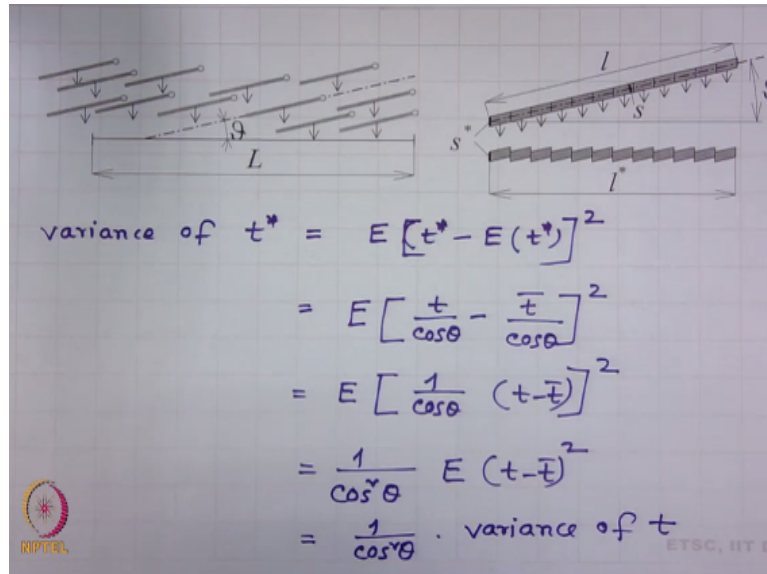 l
S
ϑ
s
s*
L
l*
variance of t* = E [t* - E (t*)]²
= E [ t/cosθ - t̄/cosθ ]²
= E [ 1/cosθ (t-t̄)]²
= 1/cos²θ E (t-t̄)²
= 1/cos²θ . variance of t
NPTEL
ETSC, IIT